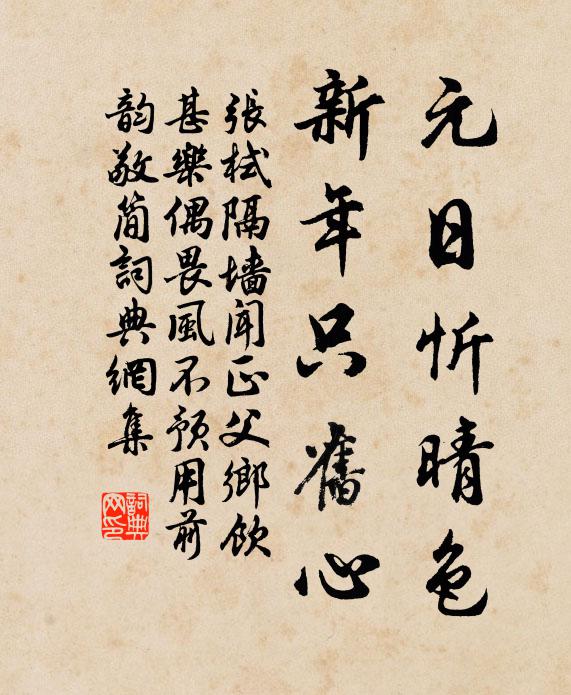 元日忻晴色
新年只舊心
張栻隔墻聞正父鄉飲
甚樂偶畏風不預用前
韵敬簡詞典網集
詞典
网印